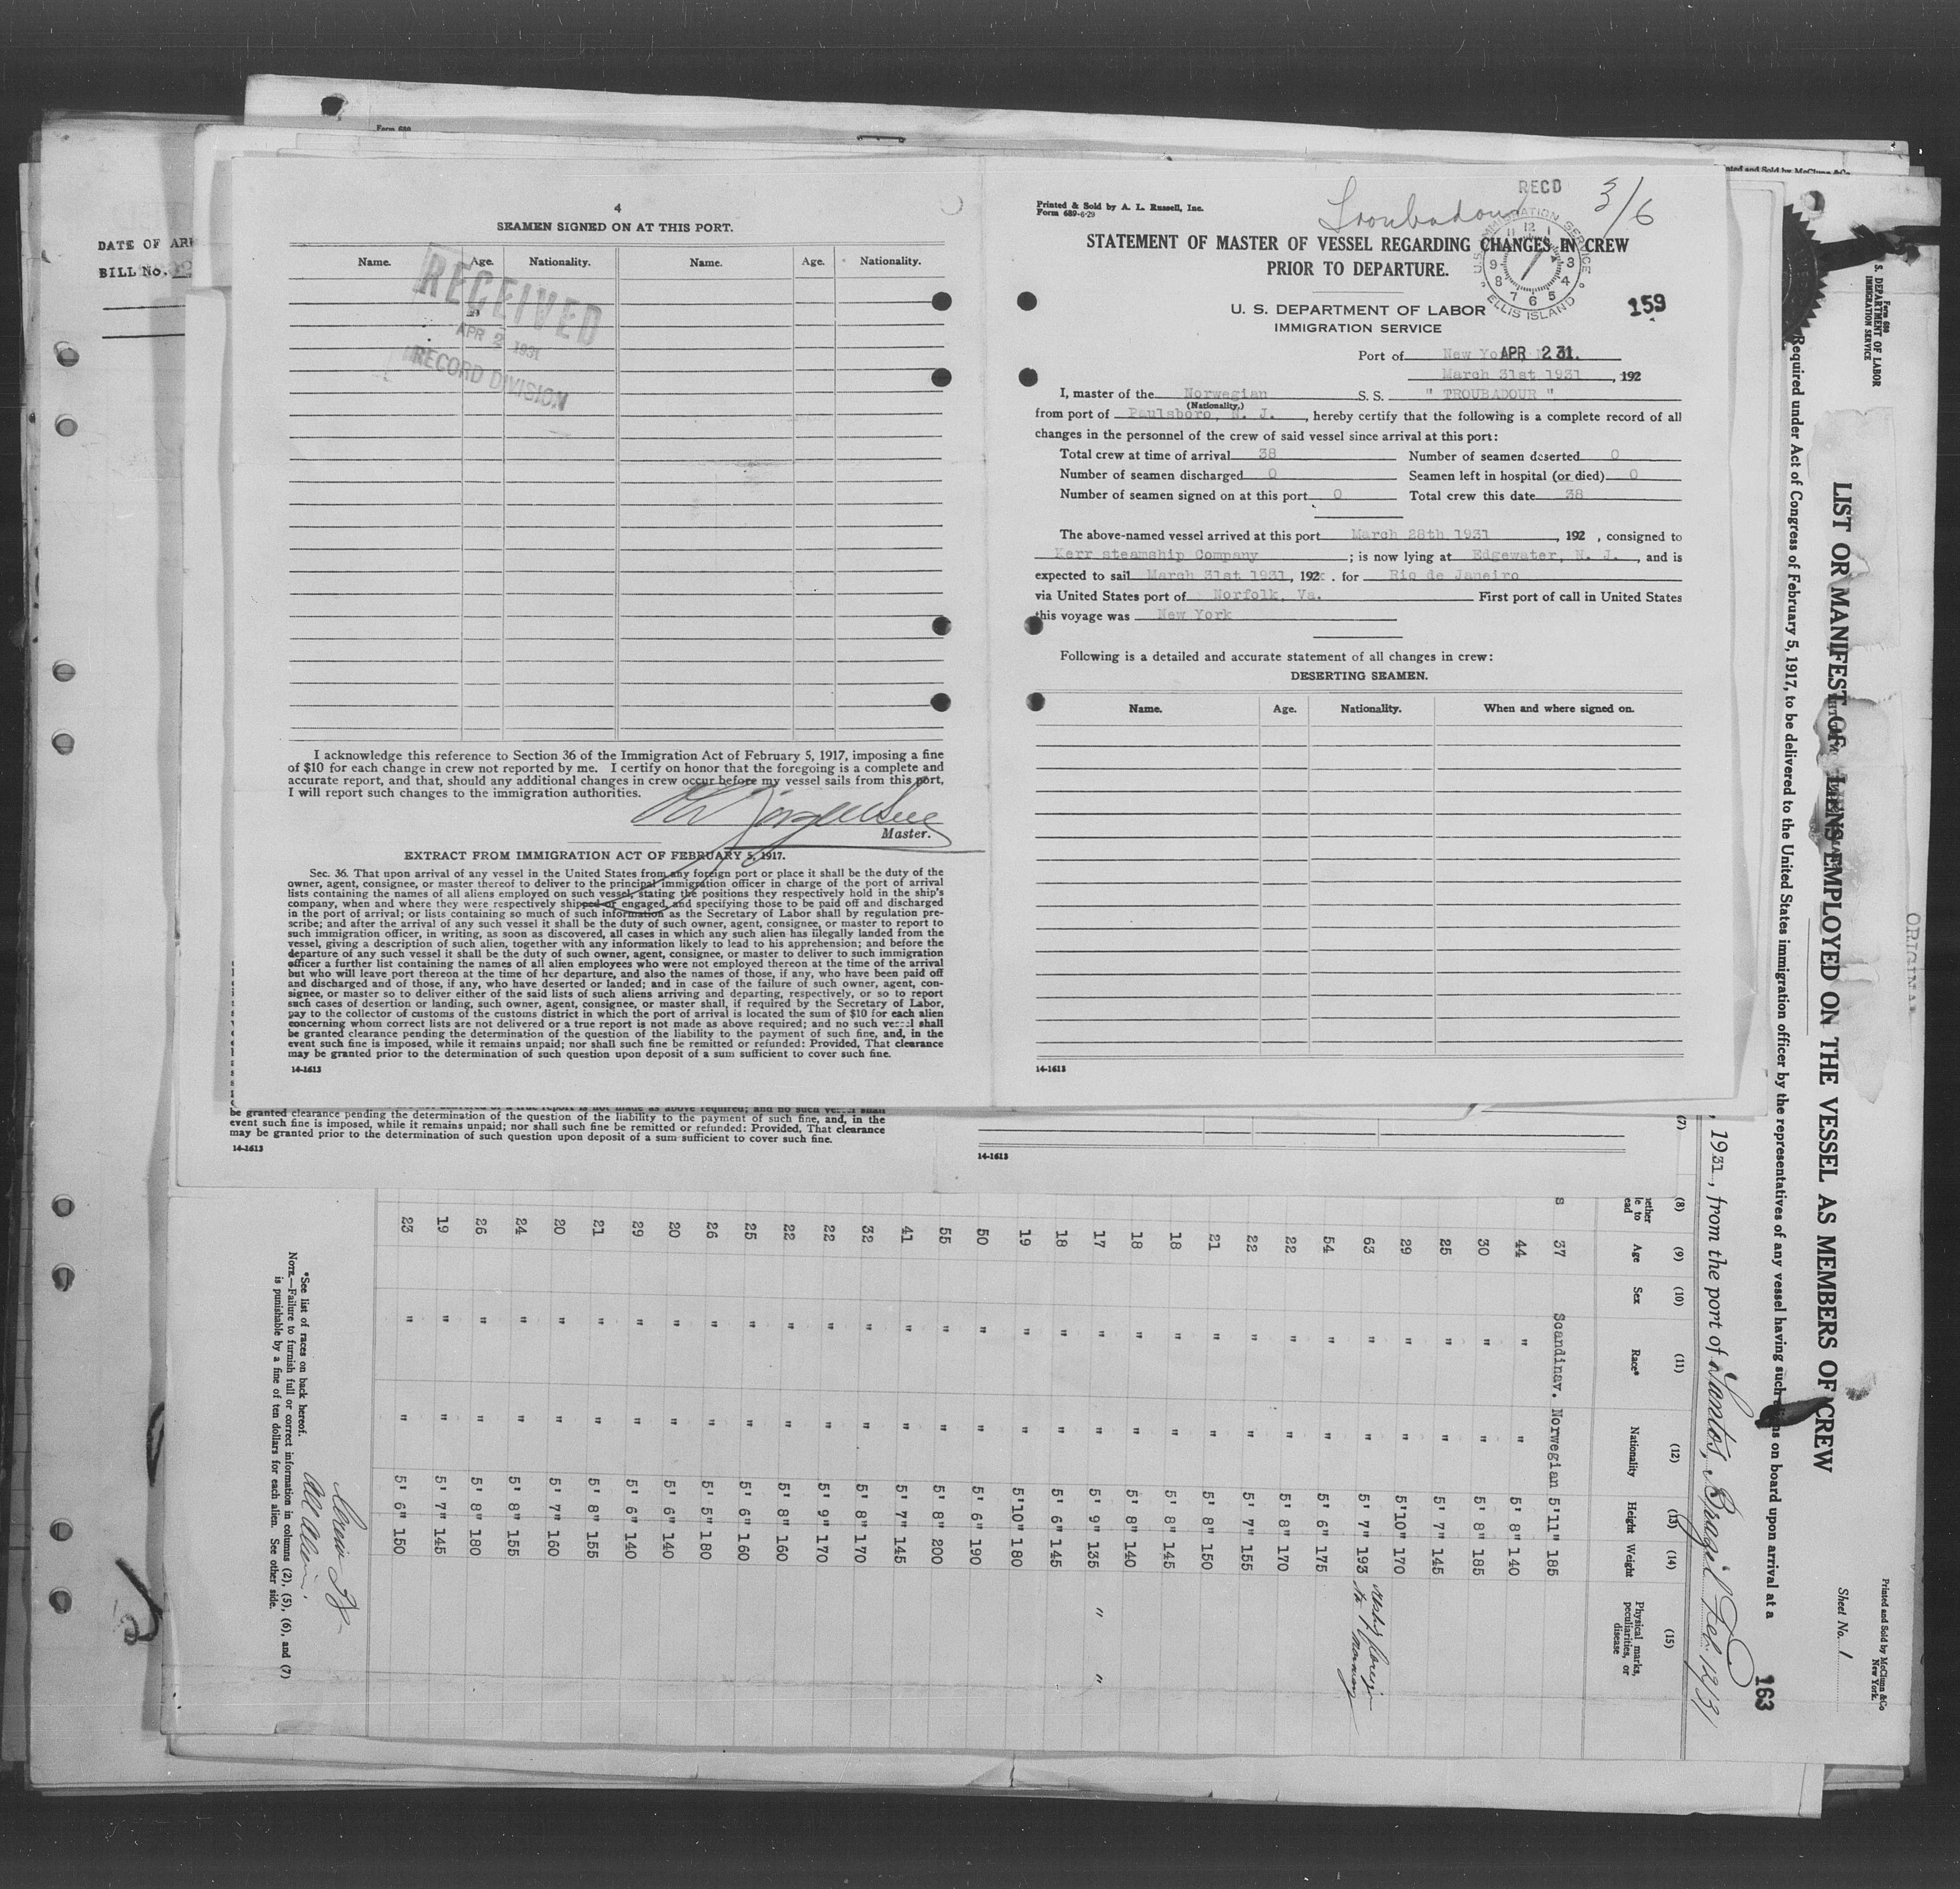 Form 689
DATE OF ARR
BILL No.
4
SEAMEN SIGNED ON AT THIS PORT.
Name. Age. Nationality. Name. Age. Nationality.
RECEIVED
APR 2 1931
RECORD DIVISION
I acknowledge this reference to Section 36 of the Immigration Act of February 5, 1917, imposing a fine
of $10 for each change in crew not reported by me. I certify on honor that the foregoing is a complete and
accurate report, and that, should any additional changes in crew occur before my vessel sails from this port,
I will report such changes to the immigration authorities.
Master.
EXTRACT FROM IMMIGRATION ACT OF FEBRUARY 5, 1917.
Sec. 36. That upon arrival of any vessel in the United States from any foreign port or place it shall be the duty of the
owner, agent, consignee, or master thereof to deliver to the principal immigration officer in charge of the port of arrival
lists containing the names of all aliens employed on such vessel, stating the positions they respectively hold in the ship's
company, when and where they were respectively shipped or engaged, and specifying those to be paid off and discharged
in the port of arrival; or lists containing so much of such information as the Secretary of Labor shall by regulation pre-
scribe; and after the arrival of any such vessel it shall be the duty of such owner, agent, consignee, or master to report to
such immigration officer, in writing, as soon as discovered, all cases in which any such alien has illegally landed from the
vessel, giving a description of such alien, together with any information likely to lead to his apprehension; and before the
departure of any such vessel it shall be the duty of such owner, agent, consignee, or master to deliver to such immigration
officer a further list containing the names of all alien employees who were not employed thereon at the time of the arrival
but who will leave port thereon at the time of her departure, and also the names of those, if any, who have been paid off
and discharged and of those, if any, who have deserted or landed; and in case of the failure of such owner, agent, con-
signee, or master so to deliver either of the said lists of such aliens arriving and departing, respectively, or so to report
such cases of desertion or landing, such owner, agent, consignee, or master shall, if required by the Secretary of Labor,
pay to the collector of customs of the customs district in which the port of arrival is located the sum of $10 for each alien
concerning whom correct lists are not delivered or a true report is not made as above required; and no such vessel shall
be granted clearance pending the determination of the question of the liability to the payment of such fine, and, in the
event such fine is imposed, while it remains unpaid; nor shall such fine be remitted or refunded: Provided, That clearance
may be granted prior to the determination of such question upon deposit of a sum sufficient to cover such fine.
14-1613
Printed & Sold by A. L. Russell, Inc.
Form 689-6-29
Troubadour
RECD
3/6
U.S. IMMIGRATION SERVICE
ELLIS ISLAND
STATEMENT OF MASTER OF VESSEL REGARDING CHANGES IN CREW
PRIOR TO DEPARTURE.
U. S. DEPARTMENT OF LABOR
IMMIGRATION SERVICE
159
Port of New York, N. Y.
APR 2 31.
March 31st 1931, 192
I, master of the Norwegian S. S. " TROUBADOUR "
(Nationality.)
from port of Paulsboro, N. J., hereby certify that the following is a complete record of all
changes in the personnel of the crew of said vessel since arrival at this port:
Total crew at time of arrival 38 Number of seamen deserted 0
Number of seamen discharged 0 Seamen left in hospital (or died) 0
Number of seamen signed on at this port 0 Total crew this date 38
The above-named vessel arrived at this port March 28th 1931, 192 , consigned to
Kerr steamship Company ; is now lying at Edgewater, N. J. , and is
expected to sail March 31st 1931, 192x . for Rio de Janeiro
via United States port of Norfolk, Va. First port of call in United States
this voyage was New York
Following is a detailed and accurate statement of all changes in crew:
DESERTING SEAMEN.
Name. Age. Nationality. When and where signed on.
14-1613
be granted clearance pending the determination of the question of the liability to the payment of such fine, and, in the
event such fine is imposed, while it remains unpaid; nor shall such fine be remitted or refunded: Provided, That clearance
may be granted prior to the determination of such question upon deposit of a sum sufficient to cover such fine.
14-1613
14-1613
ORIGINAL
Form 680
S. DEPARTMENT OF LABOR
IMMIGRATION SERVICE
Printed and Sold by McClunn & Co
New York.
Sheet No. 1
LIST OR MANIFEST OF ALIENS EMPLOYED ON THE VESSEL AS MEMBERS OF CREW
Required under Act of Congress of February 5, 1917, to be delivered to the United States immigration officer by the representatives of any vessel having such aliens on board upon arrival at a
163
, 1931, from the port of Santos, Brazil Feb 12/31
(7) (8) (9) (10) (11) (12) (13) (14) (15)
Age Sex Race* Nationality Height Weight Physical marks, peculiarities, or disease
s 37 Scandinav. Norwegian 5'11" 185
44 " " 5' 8" 140
30 " " 5' 8" 185
25 " " 5' 7" 145
29 " " 5'10" 170
63 " " 5' 7" 193
54 " " 5' 6" 175
22 " " 5' 8" 170
22 " " 5' 7" 155
21 " " 5' 8" 150
18 " " 5' 8" 145
18 " " 5' 8" 140
17 " " 5' 9" 135 " "
18 " " 5' 6" 145
19 " " 5'10" 180
50 " " 5' 6" 190
55 " " 5' 8" 200
41 " " 5' 7" 145
32 " " 5' 8" 170
22 " " 5' 9" 170
22 " " 5' 8" 160
25 " " 5' 6" 160
26 " " 5' 5" 180
20 " " 5' 6" 140
29 " " 5' 6" 140
21 " " 5' 8" 155
20 " " 5' 7" 160
24 " " 5' 8" 155
26 " " 5' 8" 180
19 " " 5' 7" 145
23 " " 5' 6" 150
*See list of races on back hereof.
NOTE.—Failure to furnish full or correct information in columns (2), (5), (6), and (7)
is punishable by a fine of ten dollars for each alien. See other side.